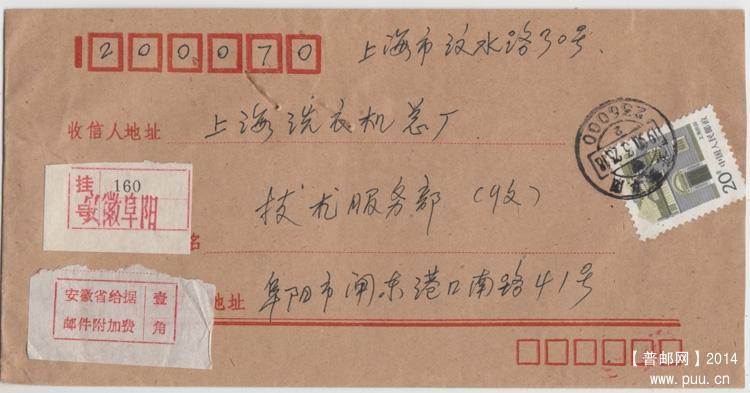 200070
上海市汶水路30号.
收信人地址
上海洗衣机总厂
挂号 160
安徽阜阳
技术服务部（收）
名
安徽省给据邮件附加费 壹角
地址
阜阳市闸东港口南路41号
236000
1991.3.23.18
20分
中国人民邮政
【普邮网】2014
www.puu.cn